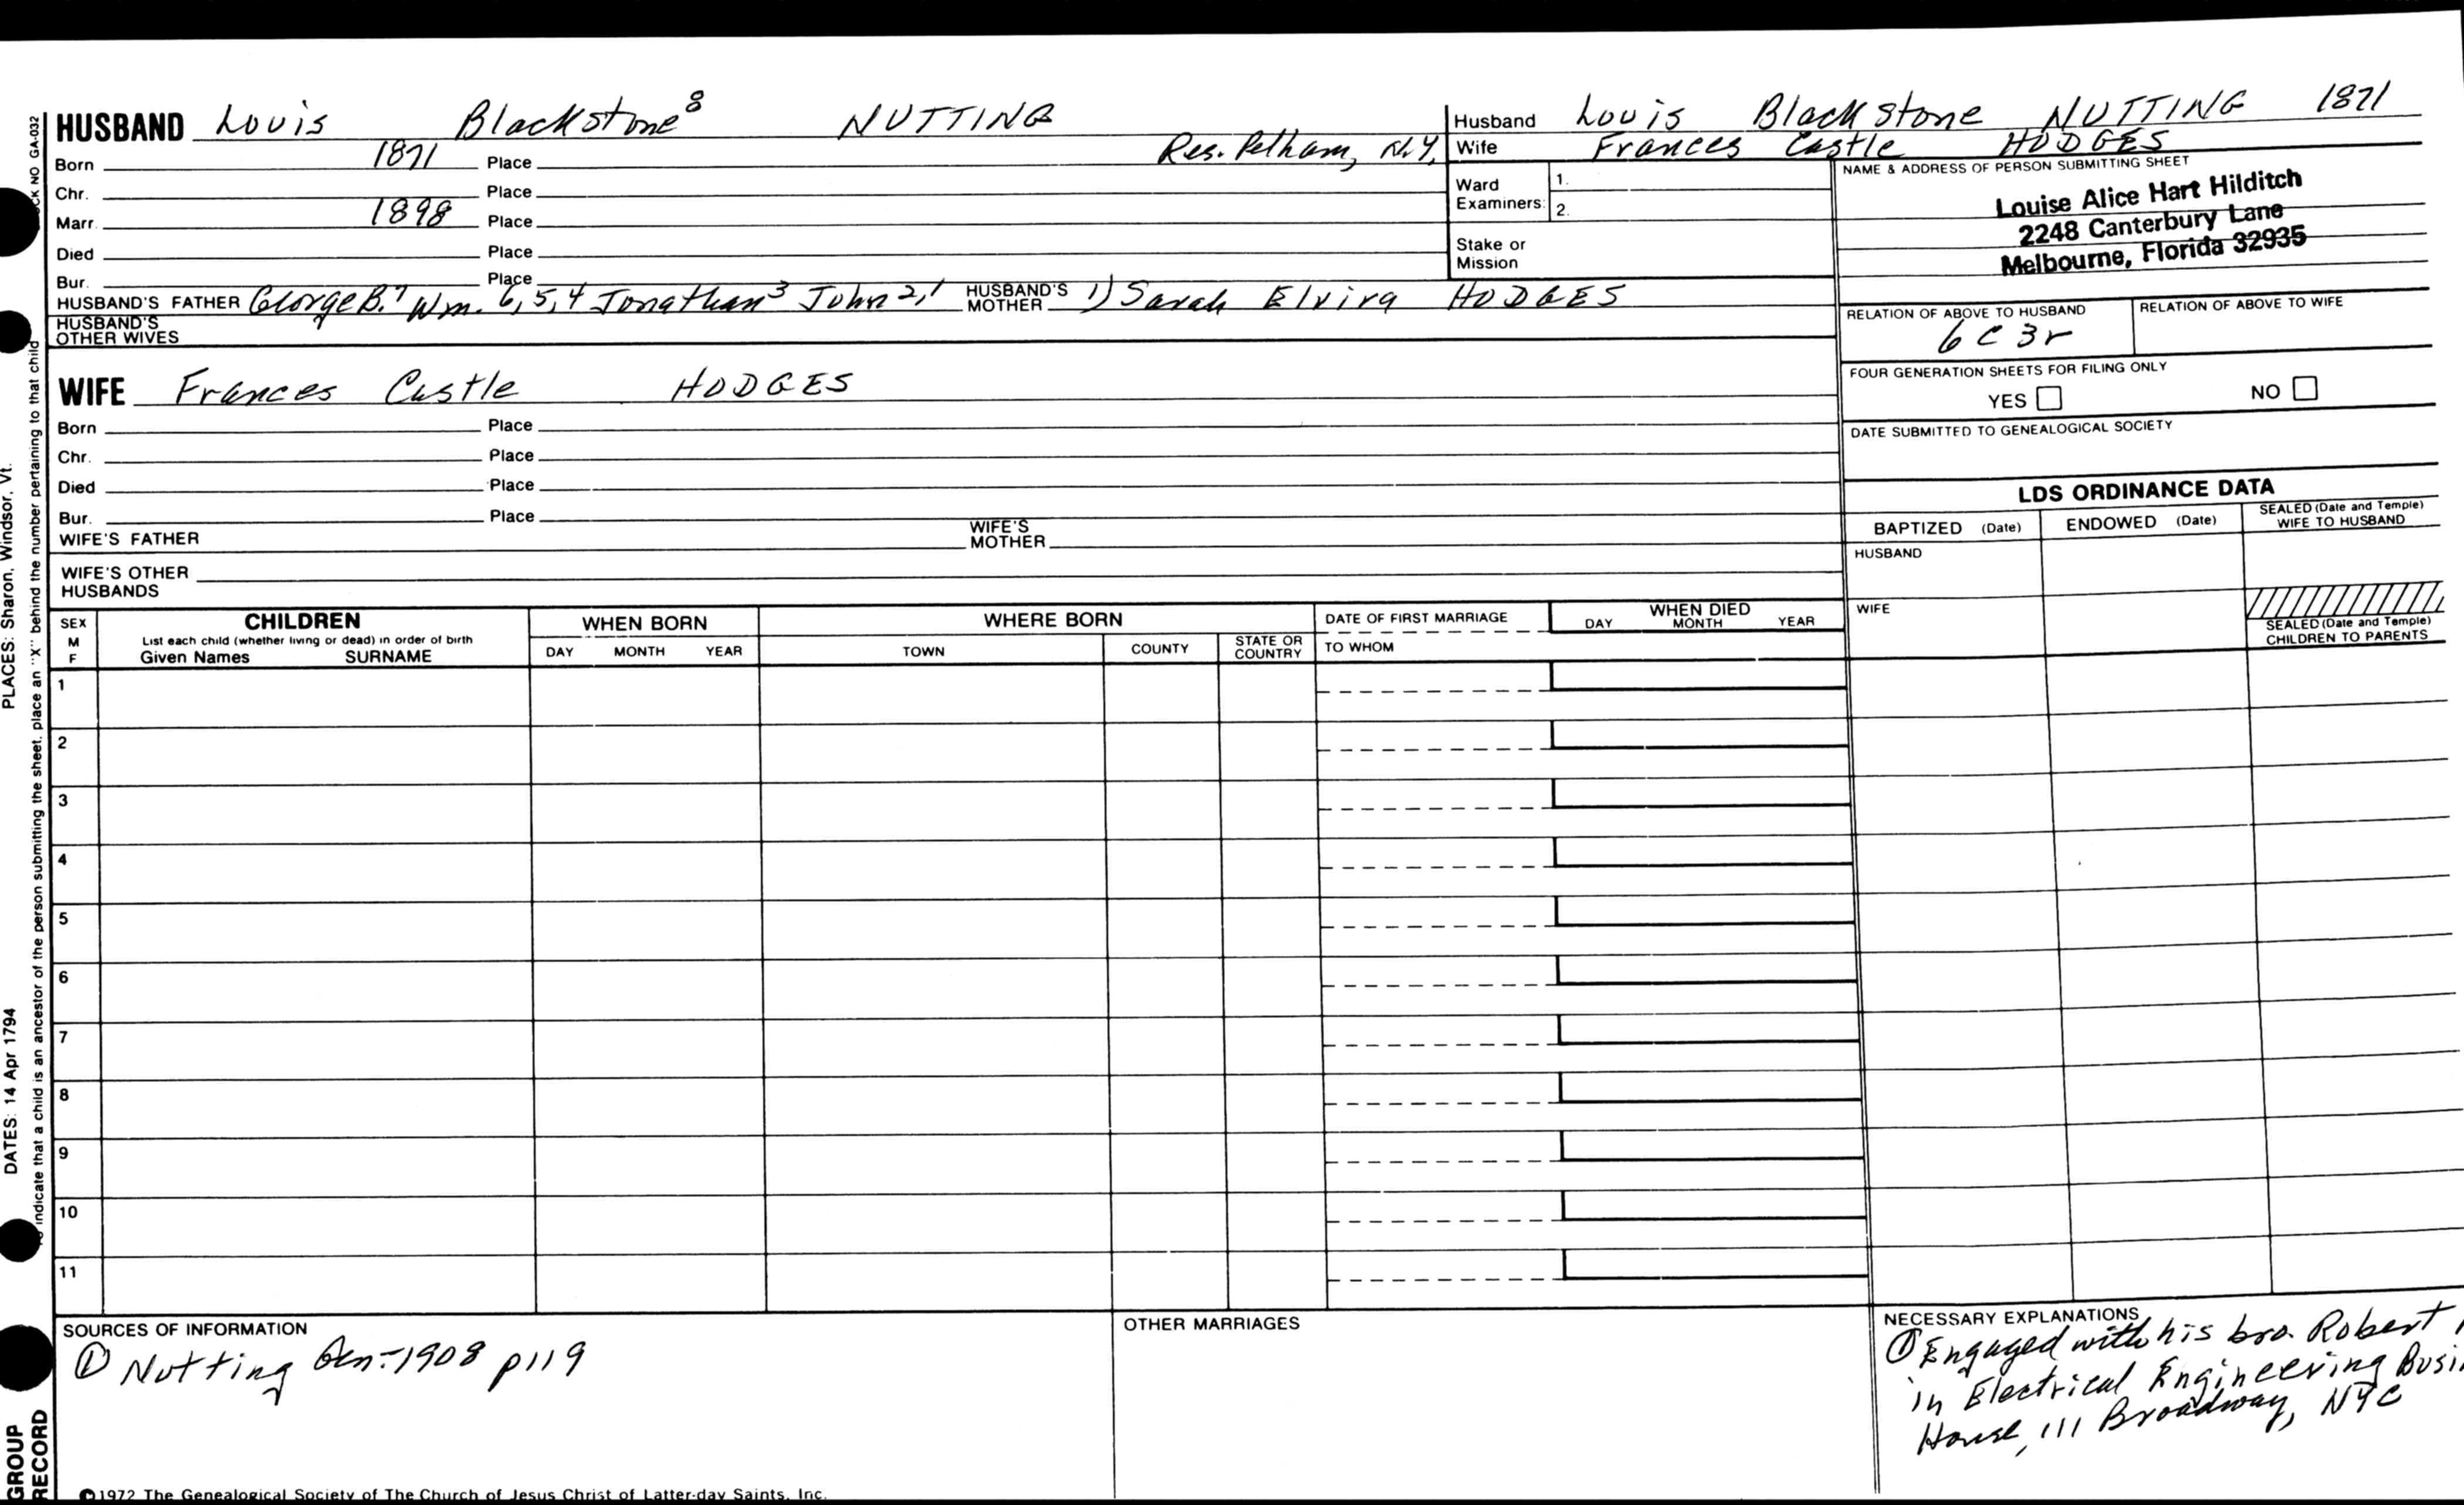 HUSBAND Louis Blackstone⁸ NUTTING
Born 1871 Place Res. Pelham, N.Y.
Chr. Place
Marr. 1898 Place
Died Place
Bur. Place
HUSBAND'S FATHER George B.⁷ Wm. 6,5,4 Jonathan³ John 2,1 HUSBAND'S MOTHER 1) Sarah Elvira HODGES
HUSBAND'S OTHER WIVES
WIFE Frances Castle HODGES
Born Place
Chr. Place
Died Place
Bur. Place
WIFE'S FATHER WIFE'S MOTHER
WIFE'S OTHER HUSBANDS
Husband Louis Blackstone NUTTING 1871
Wife Frances Castle HODGES
Ward Examiners: 1.
2.
Stake or Mission
NAME & ADDRESS OF PERSON SUBMITTING SHEET
Louise Alice Hart Hilditch
2248 Canterbury Lane
Melbourne, Florida 32935
RELATION OF ABOVE TO HUSBAND RELATION OF ABOVE TO WIFE
6 C 3r
FOUR GENERATION SHEETS FOR FILING ONLY
YES NO
DATE SUBMITTED TO GENEALOGICAL SOCIETY
LDS ORDINANCE DATA
BAPTIZED (Date) ENDOWED (Date) SEALED (Date and Temple) WIFE TO HUSBAND
HUSBAND
WIFE
SEALED (Date and Temple) CHILDREN TO PARENTS
SEX M F
CHILDREN
List each child (whether living or dead) in order of birth
Given Names SURNAME
WHEN BORN
DAY MONTH YEAR
WHERE BORN
TOWN COUNTY STATE OR COUNTRY
DATE OF FIRST MARRIAGE
TO WHOM
WHEN DIED
DAY MONTH YEAR
1
2
3
4
5
6
7
8
9
10
11
SOURCES OF INFORMATION
① Nutting Gen-1908 p119
OTHER MARRIAGES
NECESSARY EXPLANATIONS
① Engaged with his bro. Robert
in Electrical Engineering Busi
House, 111 Broadway, NYC
©1972 The Genealogical Society of The Church of Jesus Christ of Latter-day Saints, Inc.
PLACES: Sharon, Windsor, Vt.
DATES: 14 Apr 1794
indicate that a child is an ancestor of the person submitting the sheet, place an "X" behind the number pertaining to that child
NO GA-032
GROUP
RECORD